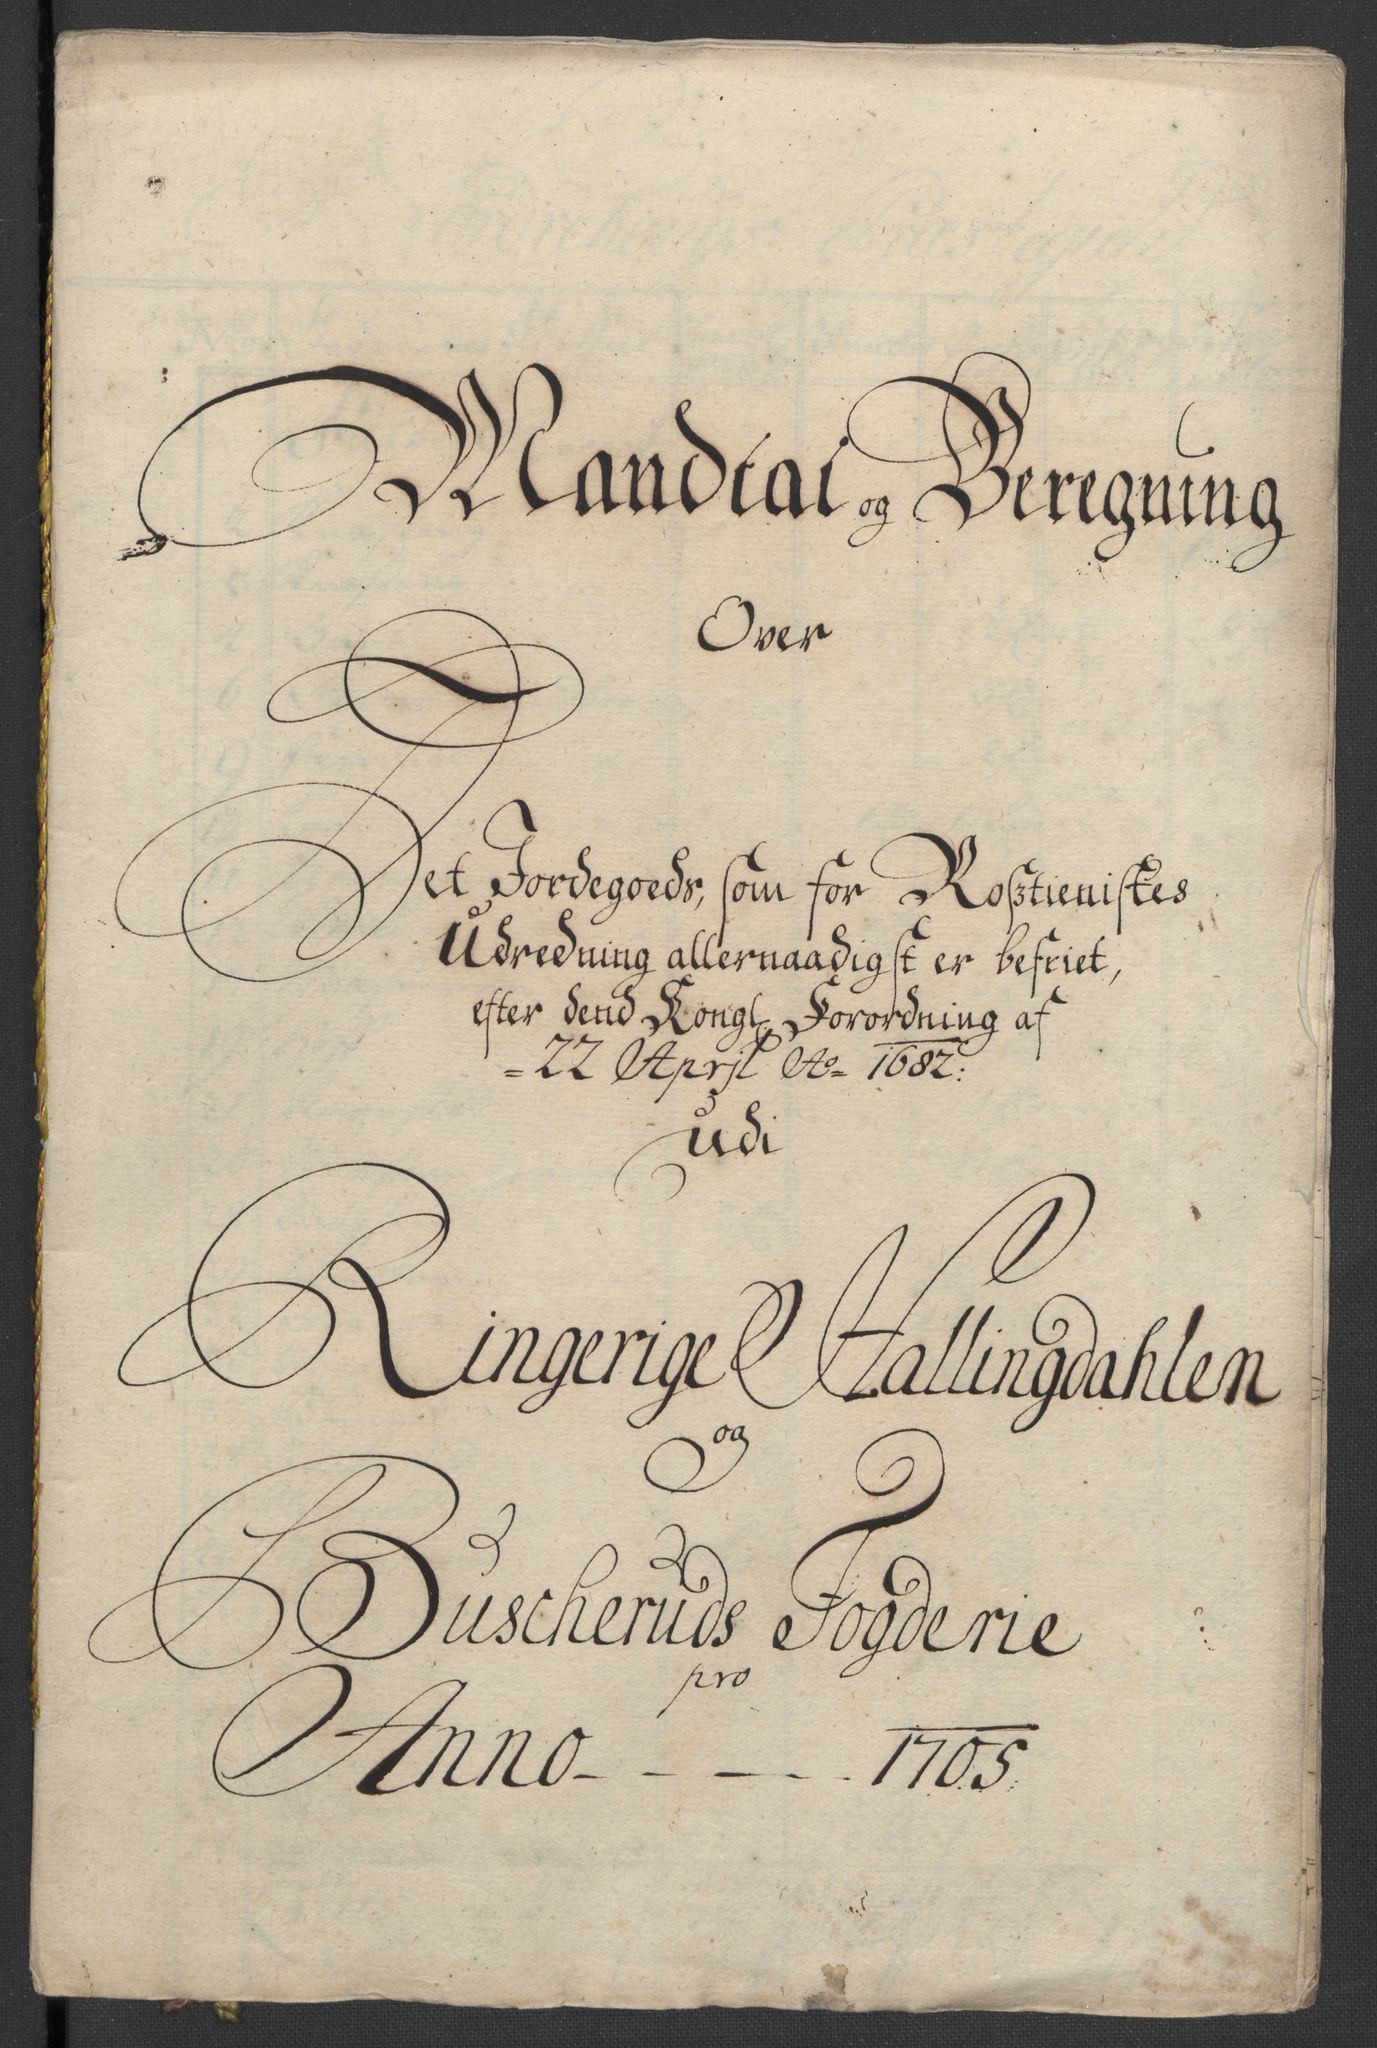 Mandtal og Beregning
Over
Det Jordegoeds, som for Rosztienistes
Udredning allernaadigst er befriet,
efter dend Kongl. Forordning af
22 Aprjl Ao 1682:
udi
Ringerige Hallingdahlen
og
Buscheruds Fogderie
pro
Anno - - - - 1705.